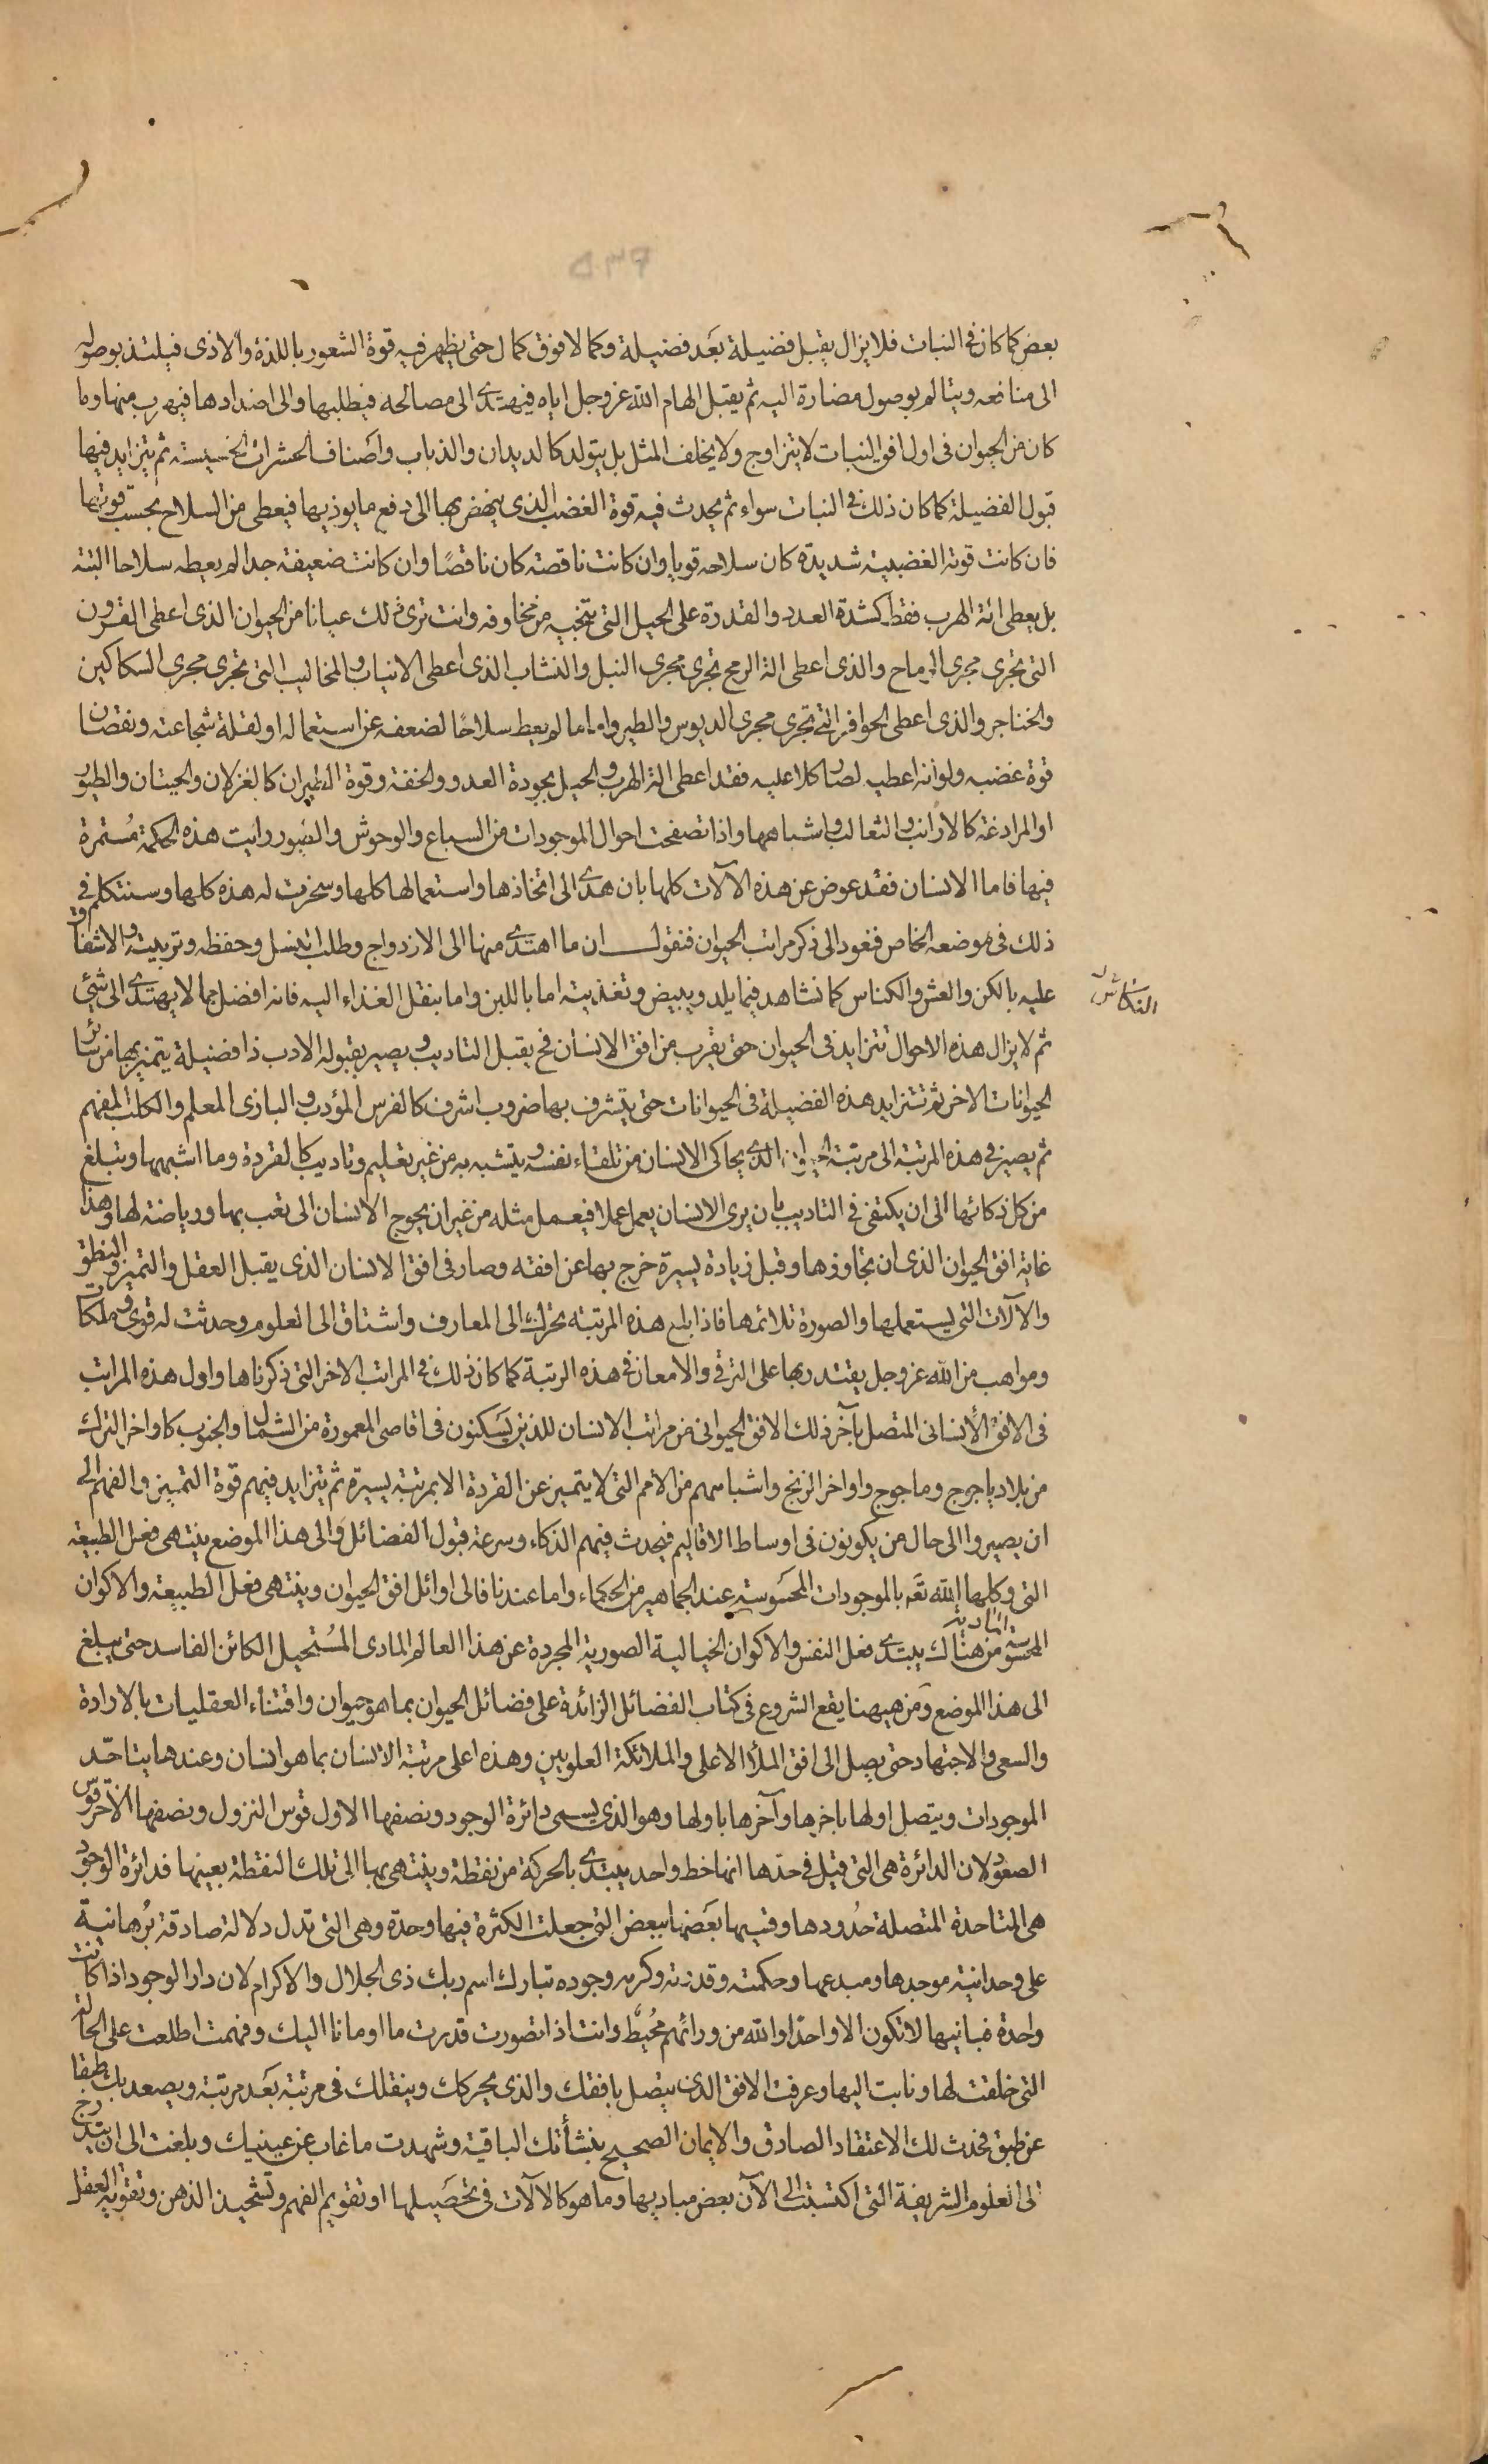 بعض كما كان فى النبات فلا يزال يقبل فضيلة بعد فضيلة وكمالا فوق كمال حتى يظهر فيه قوة الشعور باللذة والاذى فيلتذ بوصوله
الى منافعه ويتالم بوصول مضارة اليه ثم يقبل الهام الله عز وجل اياه فيهتدى الى مصالحه فيطلبها والى اضدادها فيهرب منها وما
كان من الحيوان فى اول افق النبات لا يتزاوج ولا يخلف المثل بل يتولد كالديدان والذباب واصناف الحشرات الخسيسة ثم يتزايد فيها
قبول الفضيلة كما كان ذلك فى النبات سواء ثم يحدث فيه قوة الغضب الذى ينهض بها الى دفع ما يوذيها فيعطى من السلاح بحسب قوتها
فان كانت قوته الغضبية شديدة كان سلاحه قويا وان كانت ناقصة كان ناقصا وان كانت ضعيفة جدا لم يعطه سلاحا البتة
بل يعطى الة الهرب فقط كشدة العدد والقدرة على الحيل التى تنجيه من مخاوفه وانت ترى ذلك عيانا من الحيوان الذى اعطى القرون
التى تجرى مجرى الرماح والذى اعطى الة الرمح تجرى مجرى النبل والنشاب الذى اعطى الانياب والمخاليب التى تجرى مجرى السكاكين
والخناجر والذى اعطى الحوافر التى تجرى مجرى الدبوس والطير واما ما لم يعط سلاحا لضعفه عن استعماله او لقلة شجاعته ونقصان
قوة غضبه ولو انه اعطيه لصار كلا عليه فقد اعطى الة الهرب والحيل بجودة العدو والخفة وقوة الطيران كالغزلان والحيتان والطيور
او المرادغة كالارانب والثعالب واشباهها واذا تصفحت احوال الموجودات من السباع والوحوش والطيور رايت هذه الحكمة مستمرة
فيها فاما الانسان فقد عوض عن هذه الآلات كلها بان هدى الى اتخاذها واستعمالها كلها وسخرت له هذه كلها وسنتكلم فى
ذلك فى موضعه الخاص فنعود الى ذكر مراتب الحيوان فنقول ان ما اهتدى منها الى الازدواج وطلب النسل وحفظه وتربيته والاشفاق
عليه بالكن والعش والكناس كما نشاهد فيما يلد ويبيض وتغذيته اما باللبن واما بنقل الغذاء اليه فانه افضل مما لا يهتدى الى شئ
ثم لا يزال هذه الاحوال تتزايد فى الحيوان حتى يقرب من افق الانسان فح يقبل التاديب ويصير بقبوله الادب ذا فضيلة يتميز بها من سائر
الحيوانات الاخر ثم تتزايد هذه الفضيلة فى الحيوانات حتى يتشرف بها ضروب اشرف كالفرس المؤدب والبازى المعلم والكلب المفهم
ثم يصير فى هذه المرتبة الى مرتبة الحيوان الذى يحاكى الانسان من تلقاء نفسه ويتشبه به من غير تعليم وتاديب كالقردة وما اشبهها وتبلغ
من كل ذكائها الى ان يكتفى فى التاديب بان يرى الانسان يعمل عملا فيعمل مثله من غير ان يحوج الانسان الى تعب بها ورياضة لها وهذا
غاية افق الحيوان الذى ان تجاوزها وقبل زيادة يسيرة خرج بها عن افقه وصار فى افق الانسان الذى يقبل العقل والتميز والنطق
والآلات التى يستعملها والصورة تلائمها فاذا بلغ هذه المرتبة تحرك الى المعارف واشتاق الى العلوم وحدثت له قوى وملكات
ومواهب من الله عز وجل يقتدر بها على الترقى والامعان فى هذه الرتبة كما كان ذلك فى المراتب الاخر التى ذكرناها واول هذه المراتب
فى الافق الانسانى المتصل بآخر ذلك الافق الحيوانى من مراتب الانسان للذين يسكنون فى اقاصى المعمورة من الشمال والجنوب كاواخر الترك
من بلاد ياجوج وماجوج واواخر الزنج واشباههم من الامم التى لا يتميز عن القردة الا بمرتبة يسيرة ثم يتزايد فيهم قوة التميز والفهم الى
ان يصيروا الى حال من يكونون فى اوساط الاقاليم فيحدث فيهم الذكاء وسرعة قبول الفضائل والى هذا الموضع ينتهى فعل الطبيعة
التى وكلها الله تعم بالموجودات المحسوسة عند الجماهير من الحكماء واما عندنا فالى اوائل افق الحيوان وينتهى فعل الطبيعة والاكوان
المادية
المحسوسة من هناك يبتدى فعل النفس والاكوان الخيالية الصورية المجردة عن هذا العالم المادى المستحيل الكائن الفاسد حتى يبلغ
الى هذا الموضع ومن هيهنا يقع الشروع فى كتاب الفضائل الزائدة على فضائل الحيوان بما هو حيوان واقتناء العقليات بالارادة
والسعى والاجتهاد حتى يصل الى افق الملأ الاعلى والملائكة العلويين وهذه اعلى مرتبة الانسان بما هو انسان وعندها يتاحد
الموجودات ويتصل اولها باخرها وآخرها باولها وهو الذى يسمى دائرة الوجود ونصفها الاول قوس النزول ونصفها الآخر قوس
الصعود لان الدائرة هى التى قيل فى حدها انها خط واحد يبتدى بالحركة من نقطة وينتهى بها الى تلك النقطة بعينها فدائرة الوجود
هى المتاحدة المتصلة حدودها وقسيها بعضها ببعض التى جعلت الكثرة فيها وحدة وهى التى تدل دلالة صادقة برهانية
على وحدانية موجدها ومبدعها وحكمته وقدرته وكرم وجوده تبارك اسم ربك ذى الجلال والاكرام لان دار الوجود اذا كانت
واحدة فبانيها لا تكون الا واحدا والله من ورائهم محيط وانت اذا تصورت قدرت ما اومانا اليك وفهمت اطلعت على الحالة
التى خلقت لها ونابت اليها وعرفت الافق الذى يتصل بافقك والذى يحركك وينقلك فى مرتبة بعد مرتبة ويصعد بك طبقا
عن طبق فحدث لك الاعتقاد الصادق والايمان الصحيح بنشأتك الباقية وشهدت ما غاب عن عينيك وبلغت الى ان يتدرج
الى العلوم الشريفة التى اكتسبت الى الآن بعض مباديها وما هو كالآلات فى تحصيلها او تقويم الفهم وتشحيذ الذهن وتقوية العقل